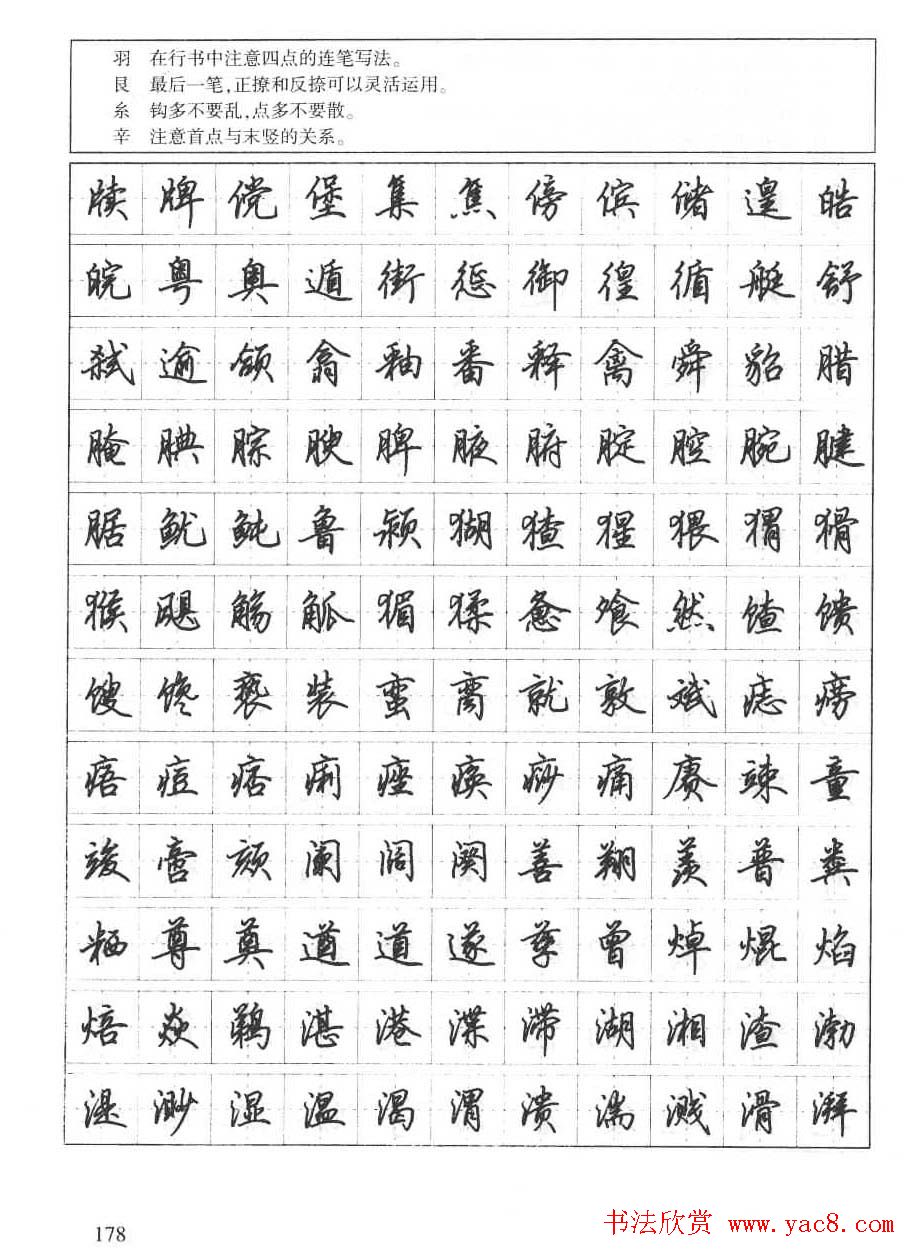 羽 在行书中注意四点的连笔写法。
艮 最后一笔,正撩和反捺可以灵活运用。
糸 钩多不要乱,点多不要散。
辛 注意首点与末竖的关系。
牍 牌 傥 堡 集 焦 傍 傧 储 遑 皓
皖 粤 奥 遁 街 惩 御 徨 循 艇 舒
弑 逾 颌 翕 釉 番 释 禽 舜 貂 腊
腌 腆 腙 腴 脾 腋 腑 腚 腔 腕 腱
腒 鱿 鲀 鲁 颍 猢 猹 猩 猥 猬 猾
猴 飓 觞 觚 猸 猱 惫 飧 然 馇 馈
馊 馋 亵 装 蛮 脔 就 敦 斌 痣 痨
痦 痘 痞 痢 痤 痪 痧 痛 赓 竦 童
竣 啻 颏 阑 阔 阕 善 翔 羡 普 粪
粞 尊 奠 道 道 遂 孳 曾 焯 焜 焰
焙 焱 鹈 湛 港 渫 滞 湖 湘 渣 渤
湮 渺 湿 温 渴 渭 溃 湍 溅 滑 湃
178
书法欣赏 www.yac8.com